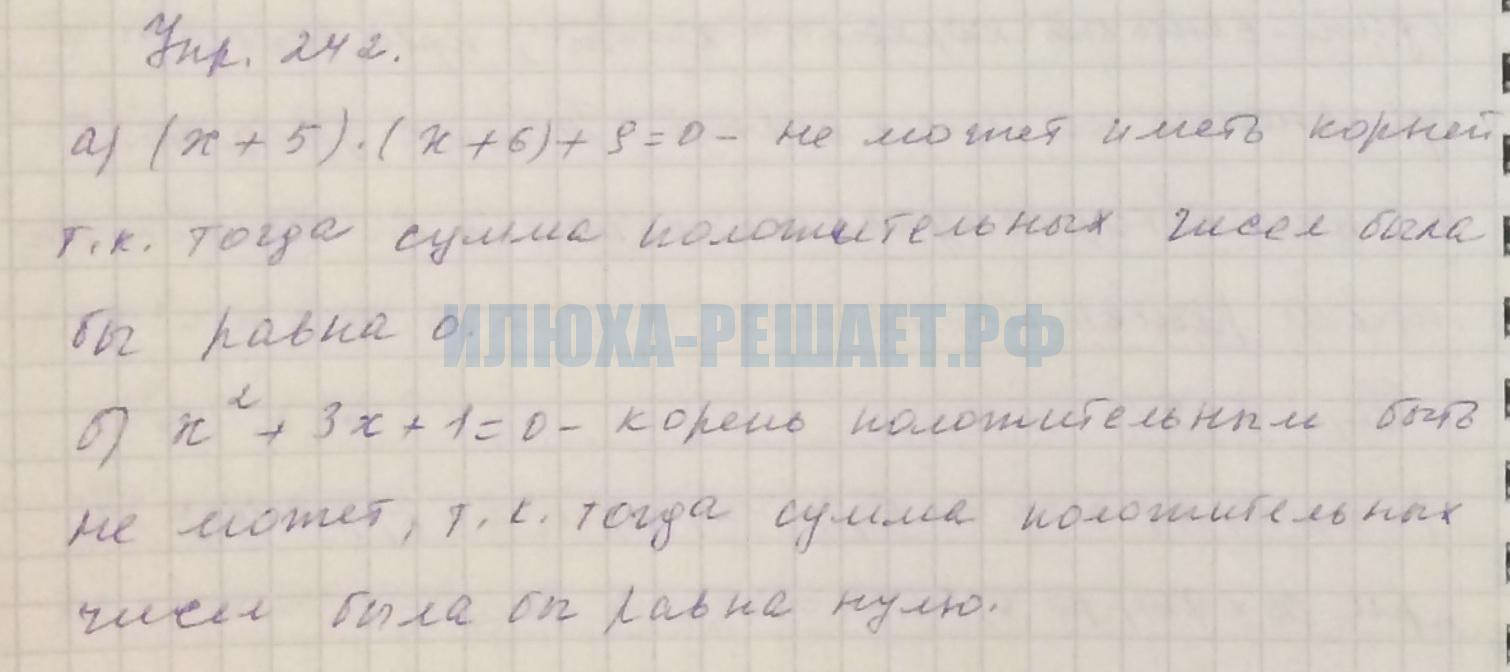 Упр. 242.
а) (x + 5) · (x + 6) + 9 = 0 - не может иметь корней
т.к. тогда сумма положительных чисел была
бы равна 0.
ИЛЮХА-РЕШАЕТ.РФ
б) x² + 3x + 1 = 0 - корень положительным быть
не может, т.к. тогда сумма положительных
чисел была бы равна нулю.